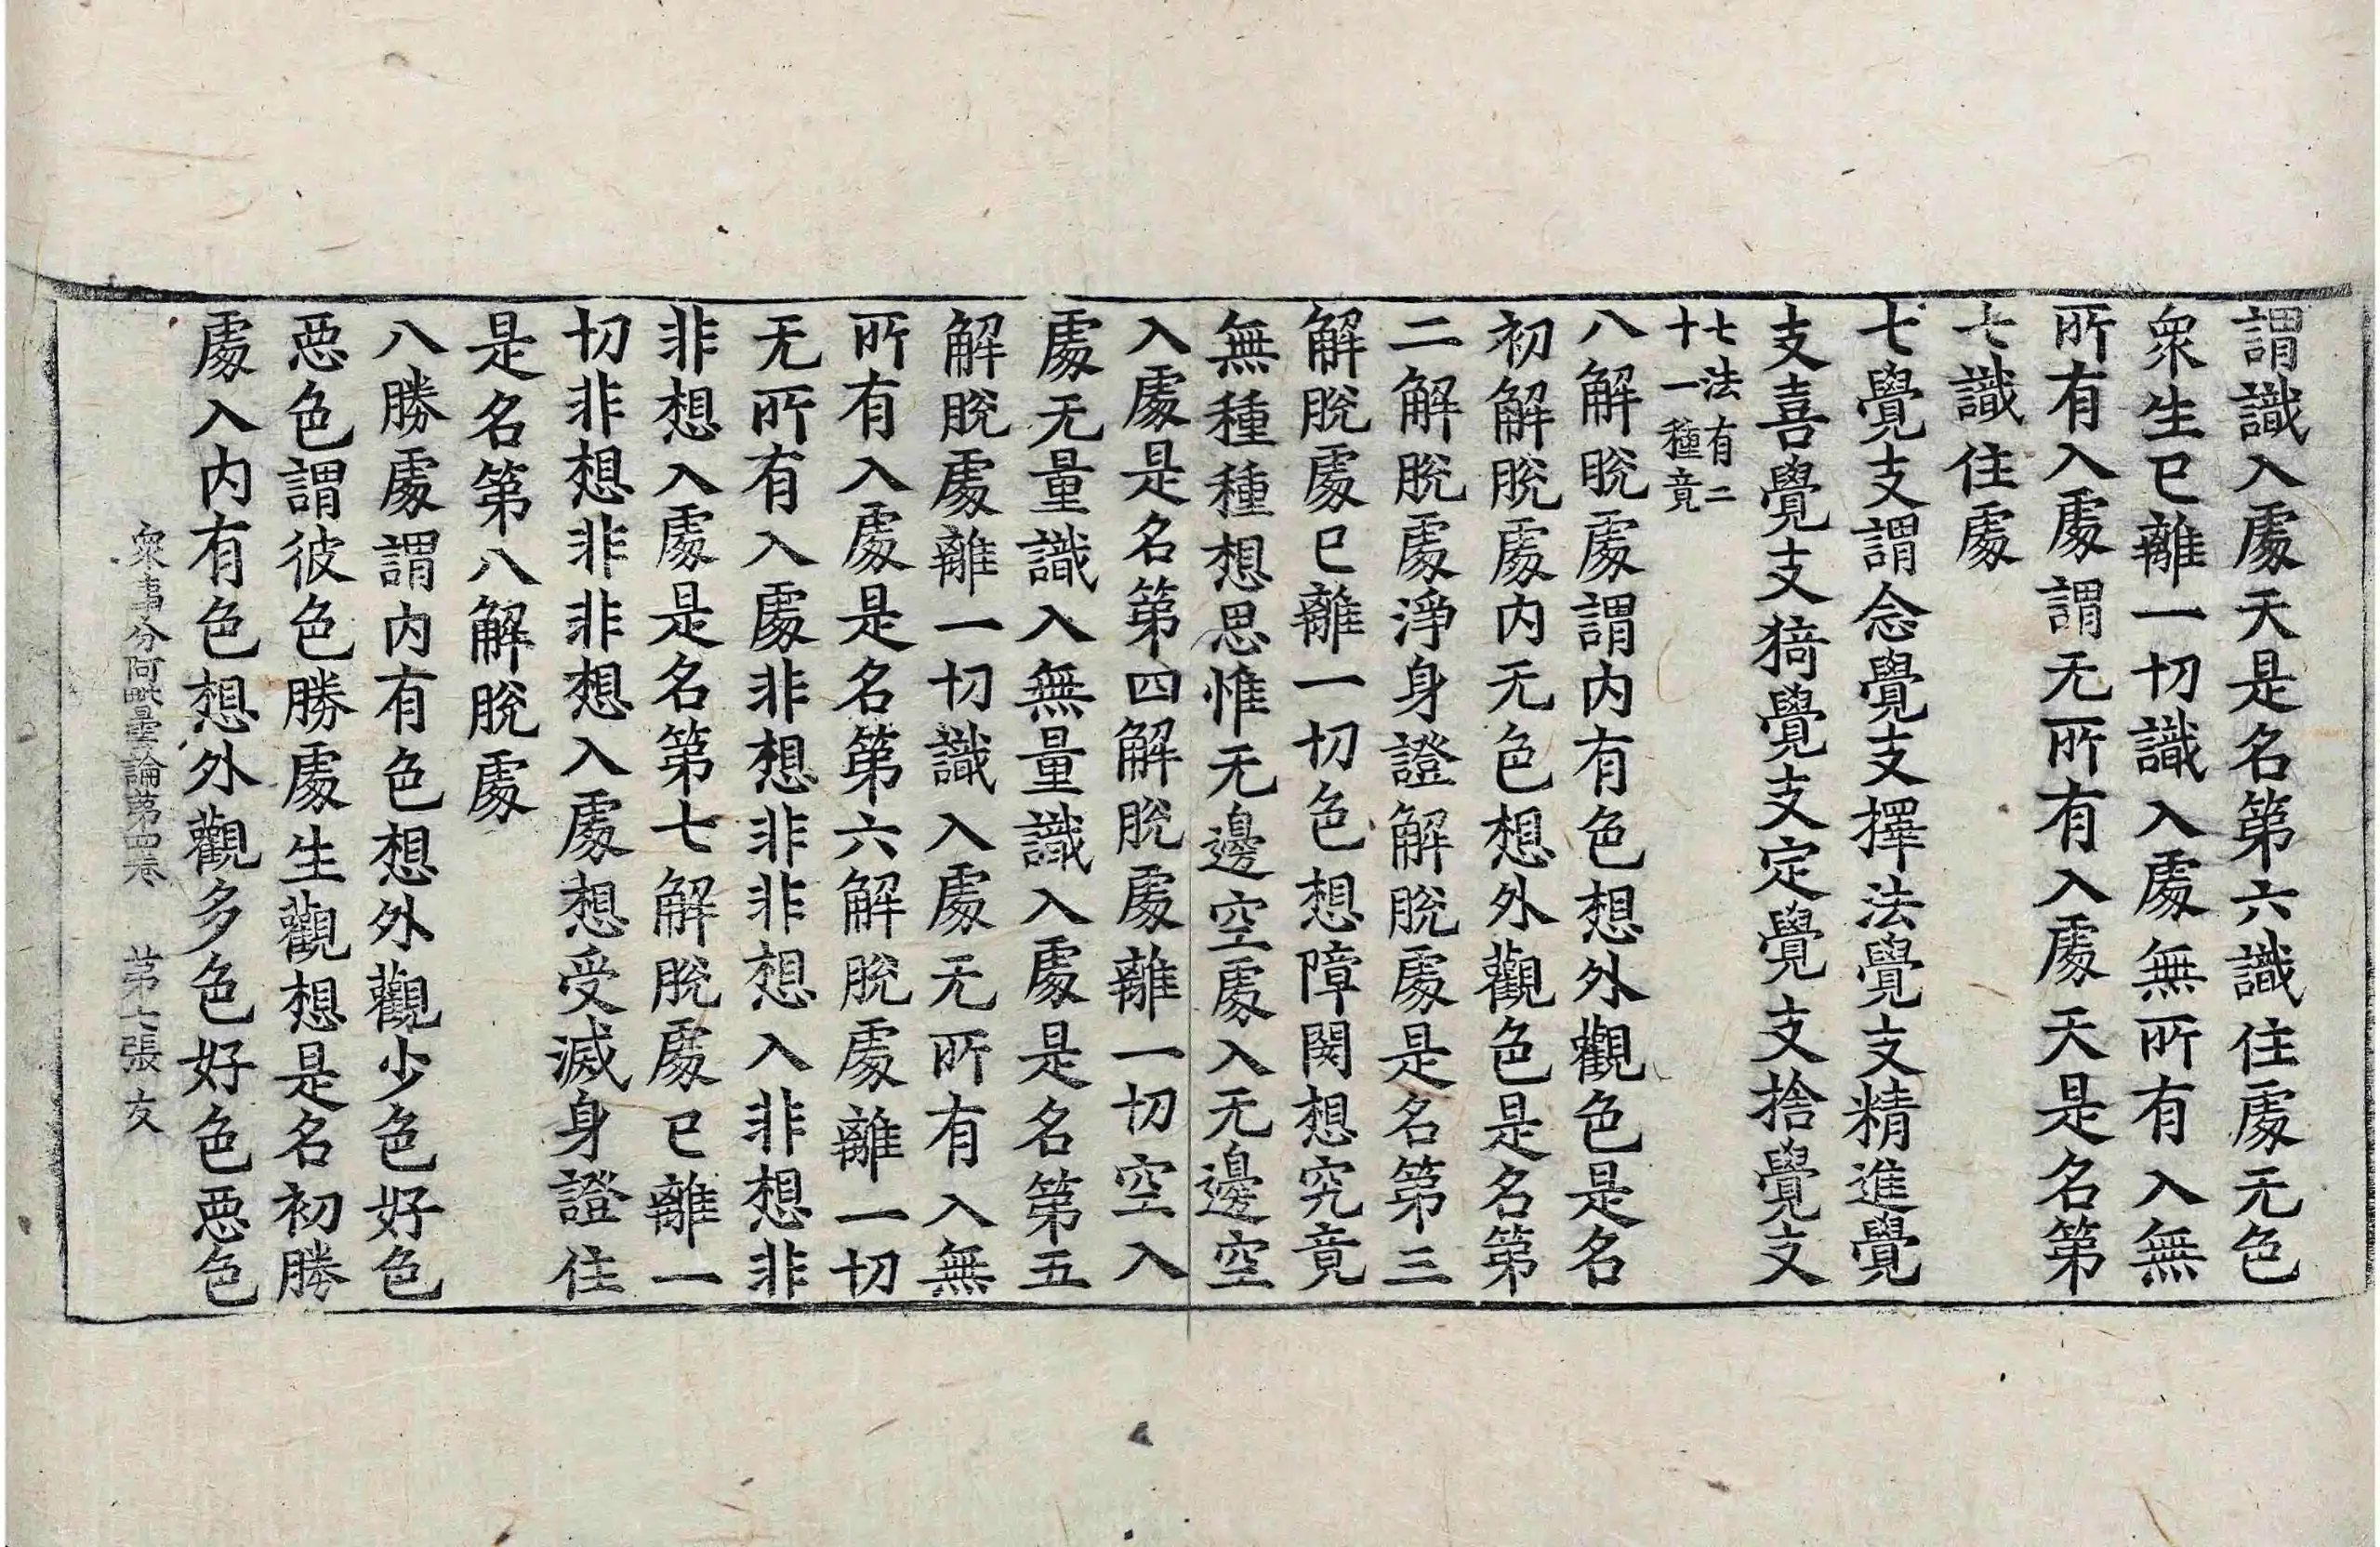 謂識入處天是名第六識住處无色
衆生已離一切識入處無所有入無
所有入處謂无所有入處天是名第
七識住處
七覺支謂念覺支擇法覺支精進覺
支喜覺支猗覺支定覺支捨覺支
七法有二
十一種竟
八解脫處謂内有色想外觀色是名
初解脫處内无色想外觀色是名第
二解脫處淨身證解脫處是名第三
解脫處已離一切色想障閡想究竟
無種種想思惟无邊空處入无邊空
入處是名第四解脫處離一切空入
處无量識入無量識入處是名第五
解脫處離一切識入處无所有入無
所有入處是名第六解脫處離一切
无所有入處非想非非想入非想非
非想入處是名第七解脫處已離一
切非想非非想入處想受滅身證住
是名第八解脫處
八勝處謂内有色想外觀少色好色
惡色謂彼色勝處生觀想是名初勝
處入内有色想外觀多色好色惡色
衆事分阿毗曇論第四卷 第七張 友